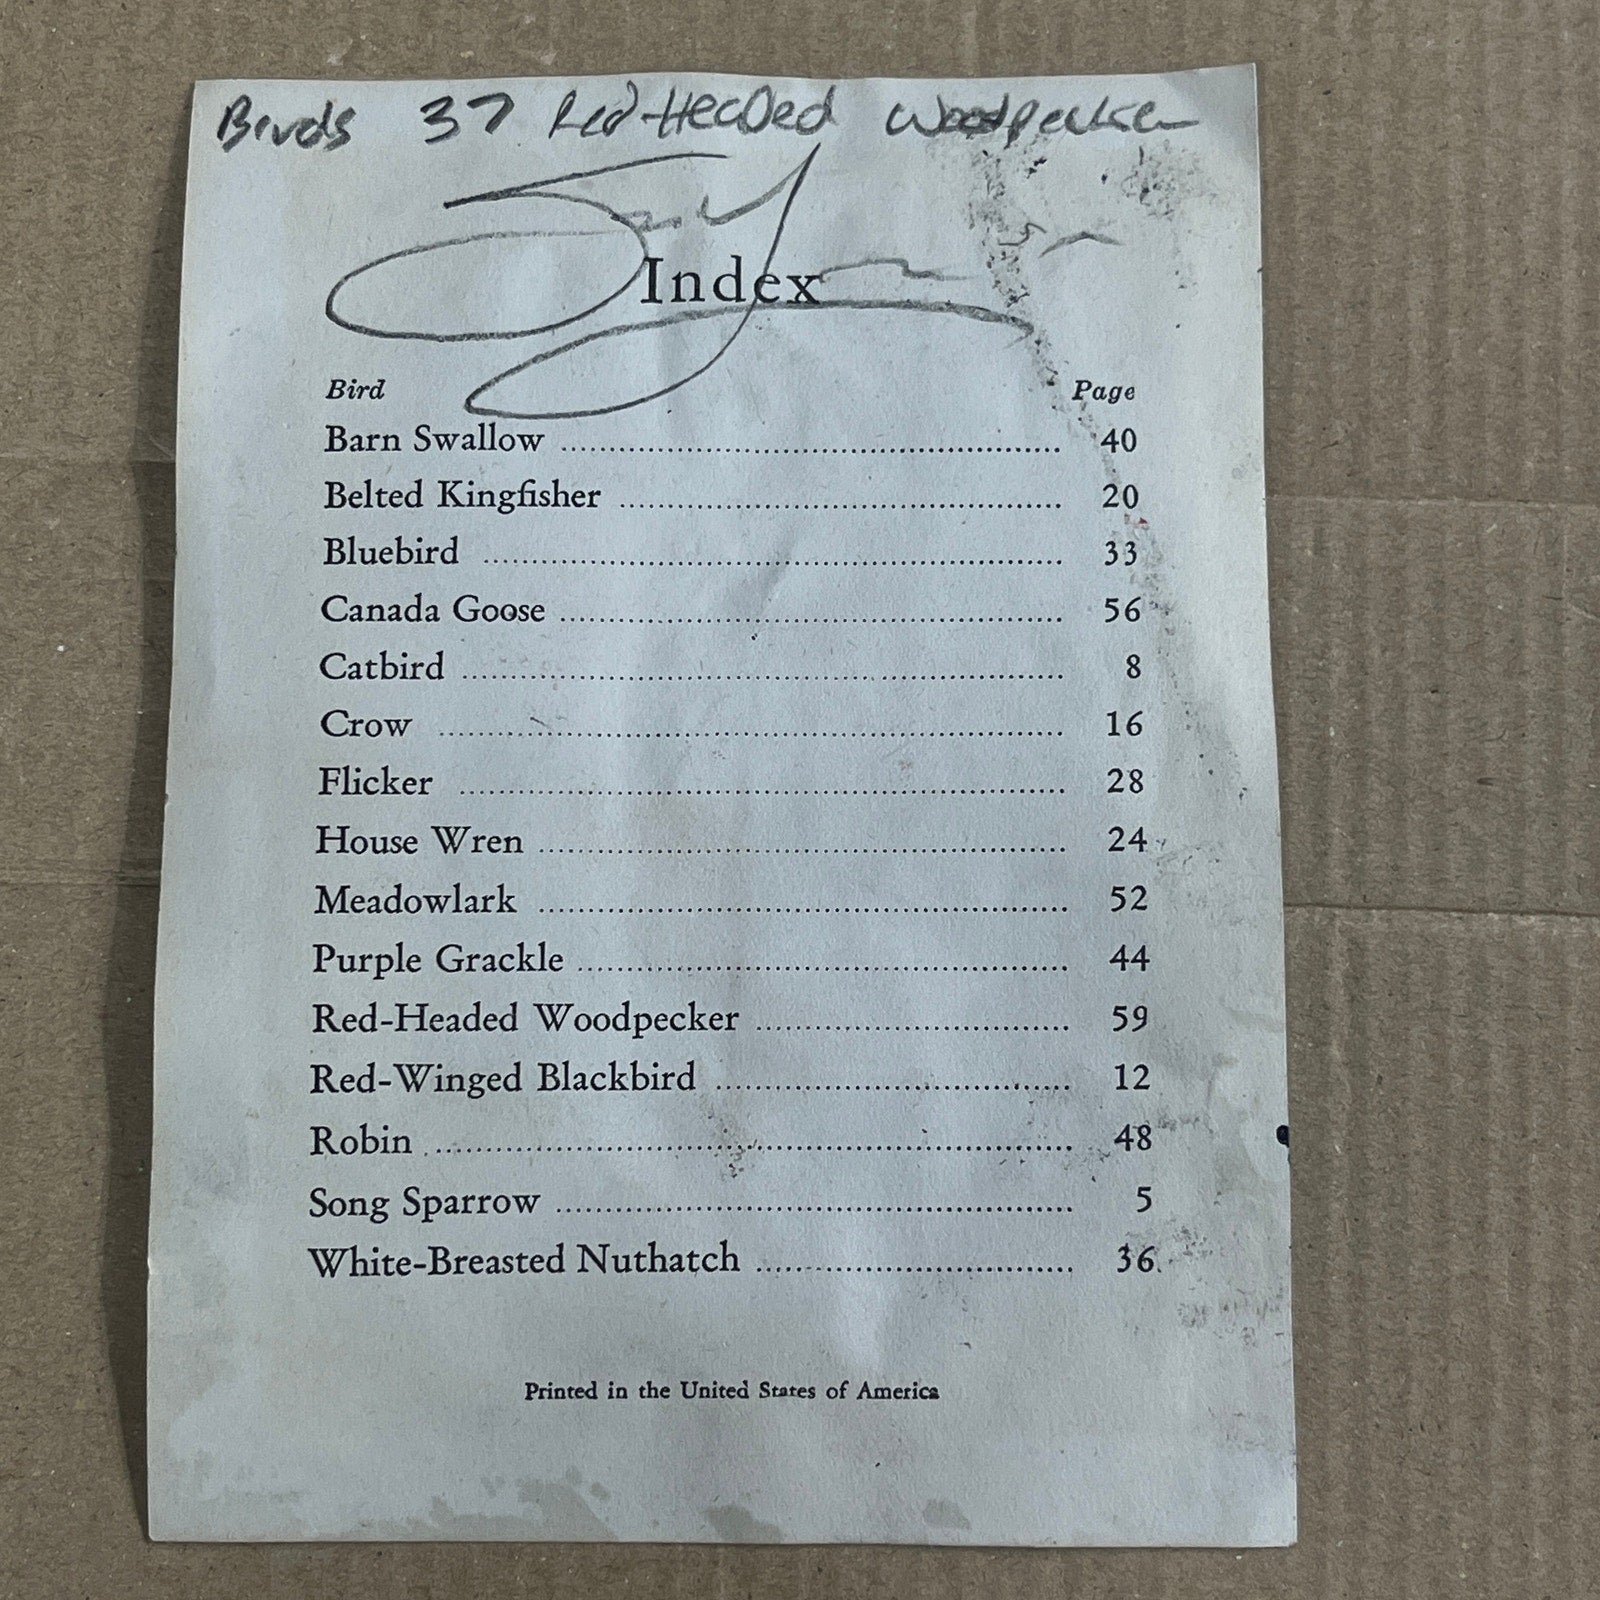 Birds 37 Red-Headed Woodpecker
Index
Bird Page
Barn Swallow 40
Belted Kingfisher 20
Bluebird 33
Canada Goose 56
Catbird 8
Crow 16
Flicker 28
House Wren 24
Meadowlark 52
Purple Grackle 44
Red-Headed Woodpecker 59
Red-Winged Blackbird 12
Robin 48
Song Sparrow 5
White-Breasted Nuthatch 36
Printed in the United States of America